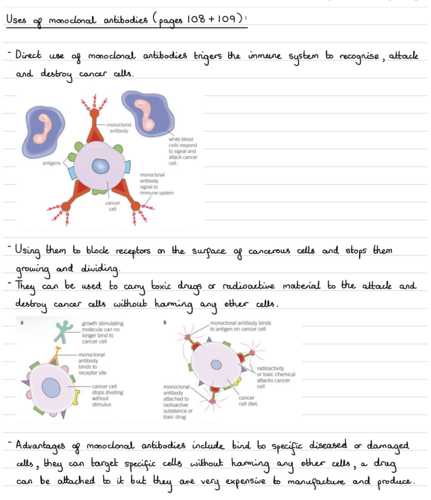 Uses of monoclonal antibodies (pages 108 + 109):
- Direct use of monoclonal antibodies trigers the immune system to recognise, attack
and destroy cancer cells.
monoclonal
antibody
white blood
cells respond
to signal and
attack cancer
cell
antigens
monoclonal
antibody
signal to
immune system
cancer
cell
- Using them to block receptors on the surface of cancerous cells and stops them
growing and dividing.
- They can be used to carry toxic drugs or radioactive material to the attack and
destroy cancer cells without harming any other cells.
a
growth stimulating
molecule can no
longer bind to
cancer cell
monoclonal
antibody
binds to
receptor site
cancer cell
stops dividing
without
stimulus
b
monoclonal antibody binds
to antigen on cancer cell
radioactivity
or toxic chemical
attacks cancer
cell
monoclonal
antibody
attached to
radioactive
substance or
toxic drug
cancer
cell dies
- Advantages of monoclonal antibodies include bind to specific diseased or damaged
cells, they can target specific cells without harming any other cells, a drug
can be attached to it but they are very expensive to manufacture and produce.